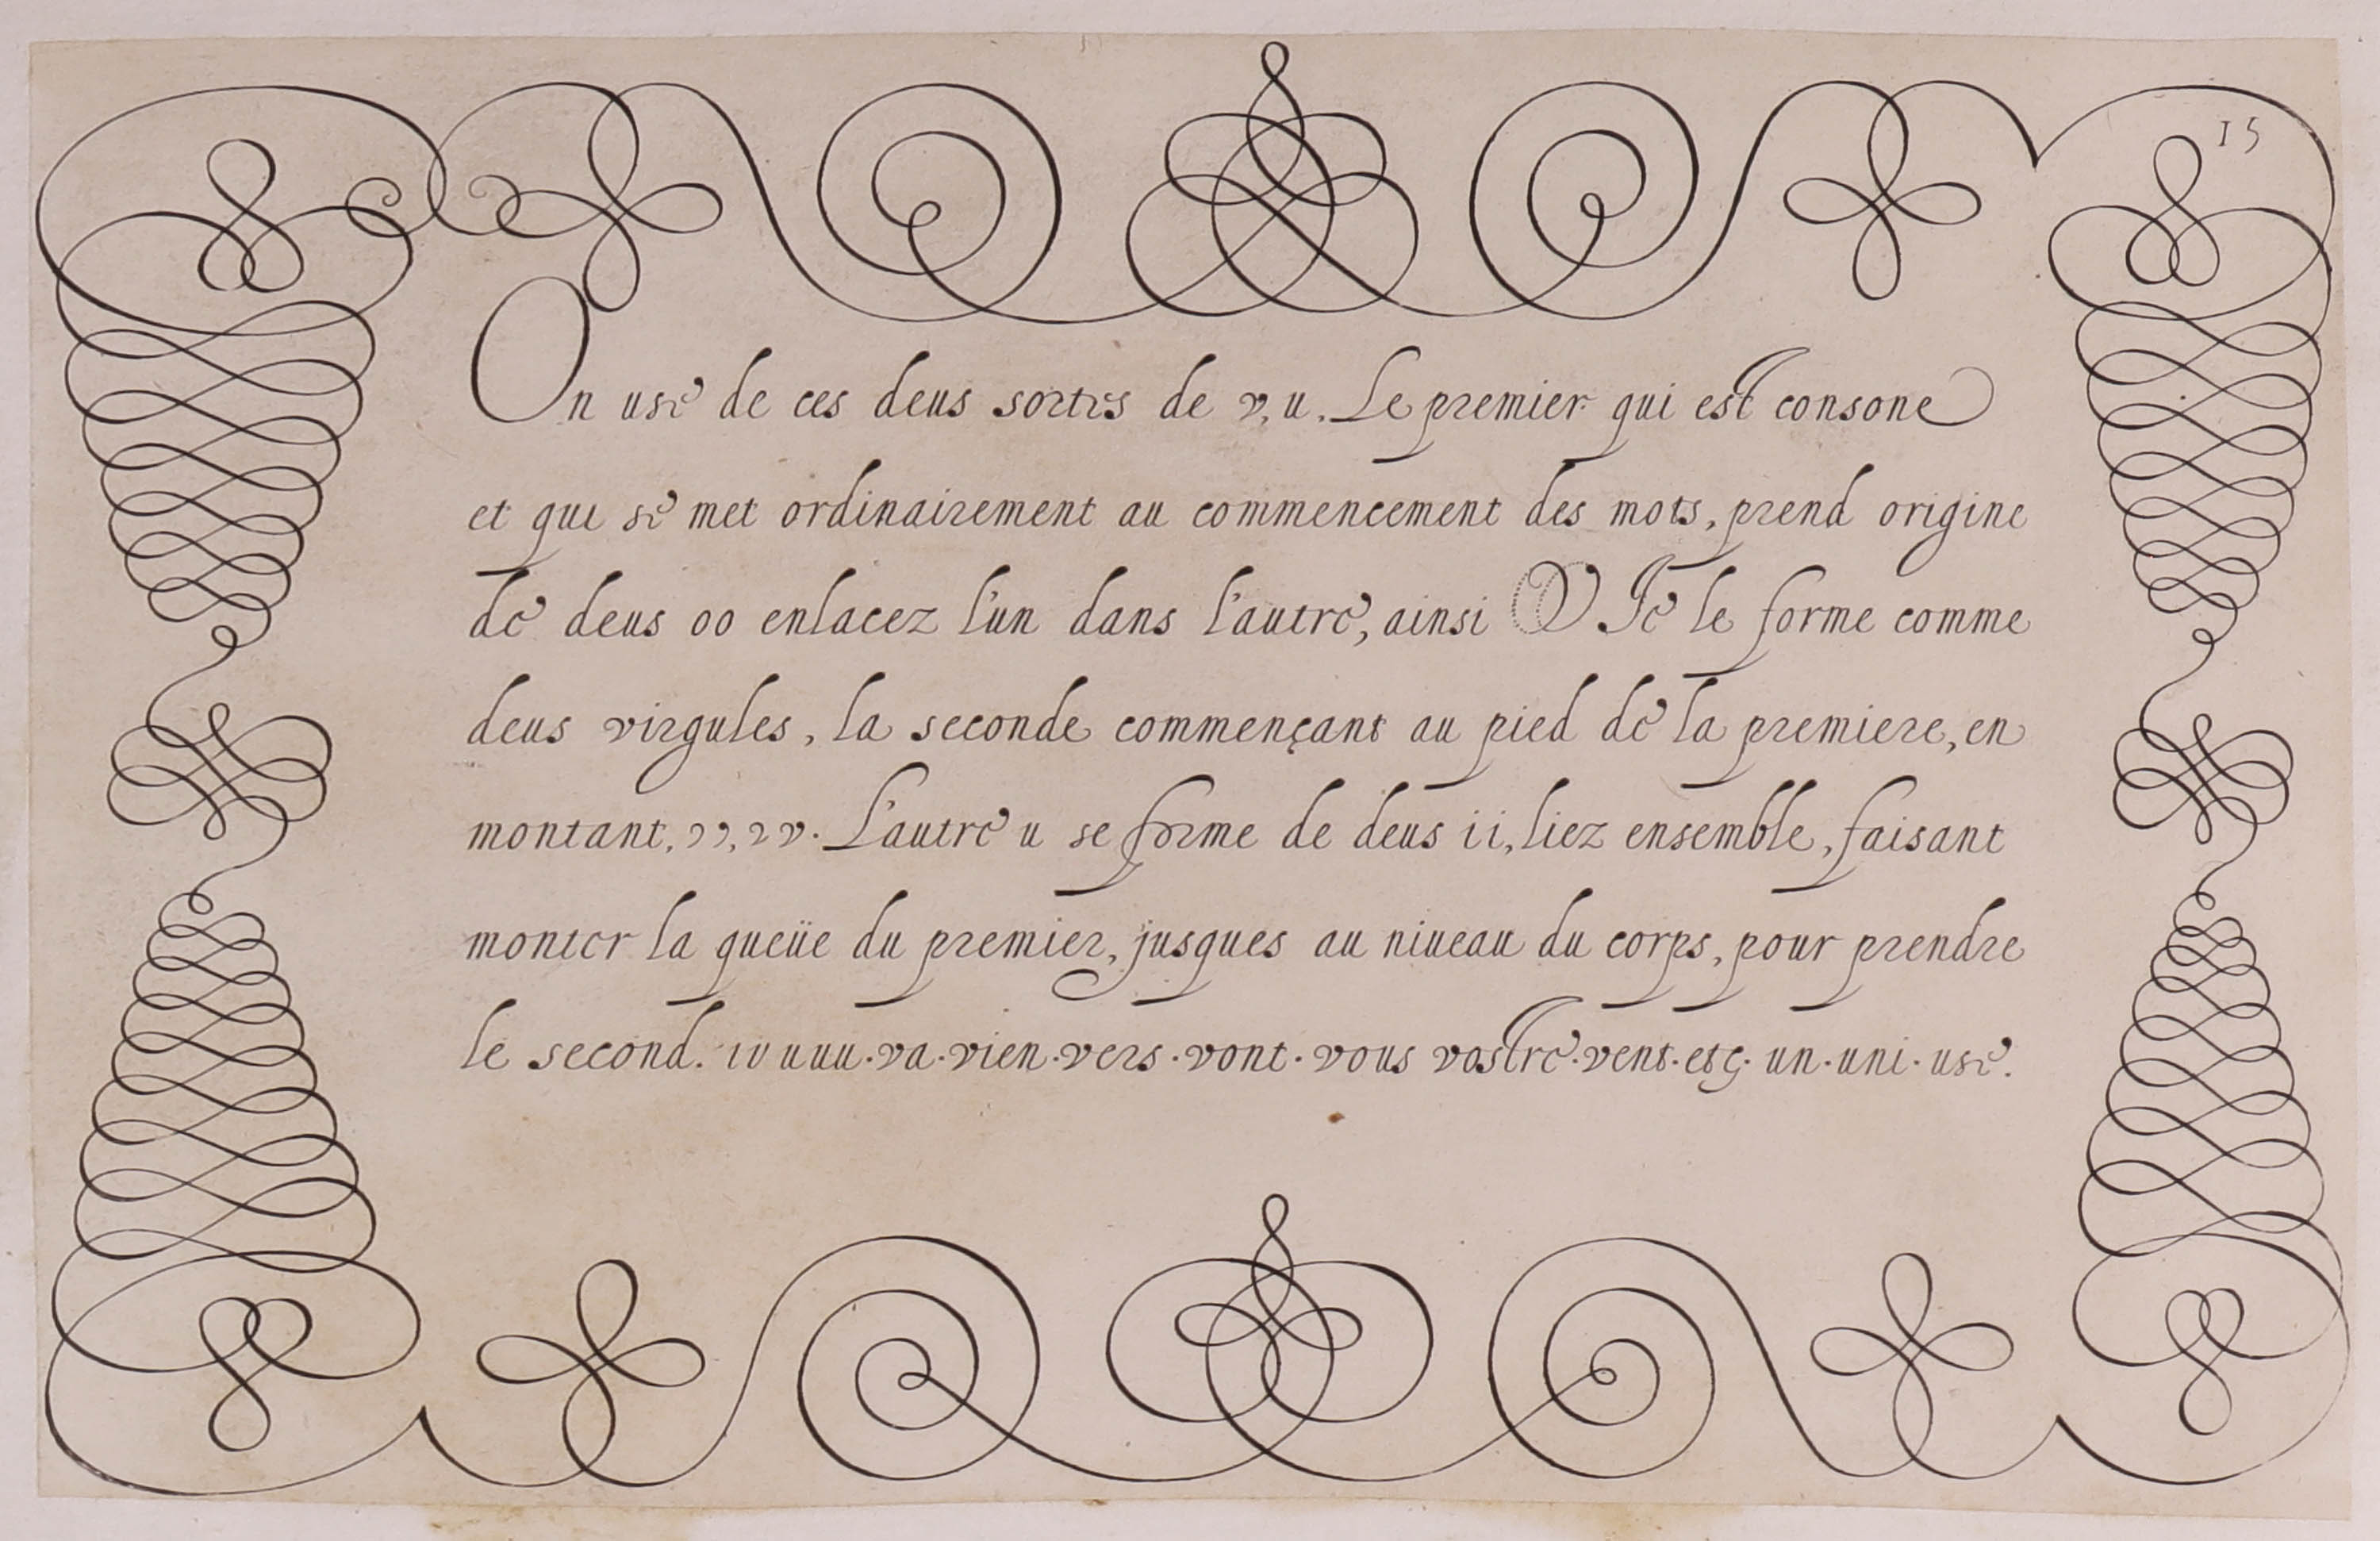 15
On use de ces deus sortes de v, u. Le premier qui est consone
et qui se met ordinairement au commencement des mots, prend origine
de deus oo enlacez l'un dans l'autre, ainsi V Ie le forme comme
deus virgules, la seconde commençant au pied de la premiere, en
montant, v. L'autre u se forme de deus ii, liez ensemble, faisant
monter la queüe du premier, jusques au niueau du corps, pour prendre
le second. ıu uuu · va · vien · vers · vont · vous vostre · vent · etc. un · uni · use.